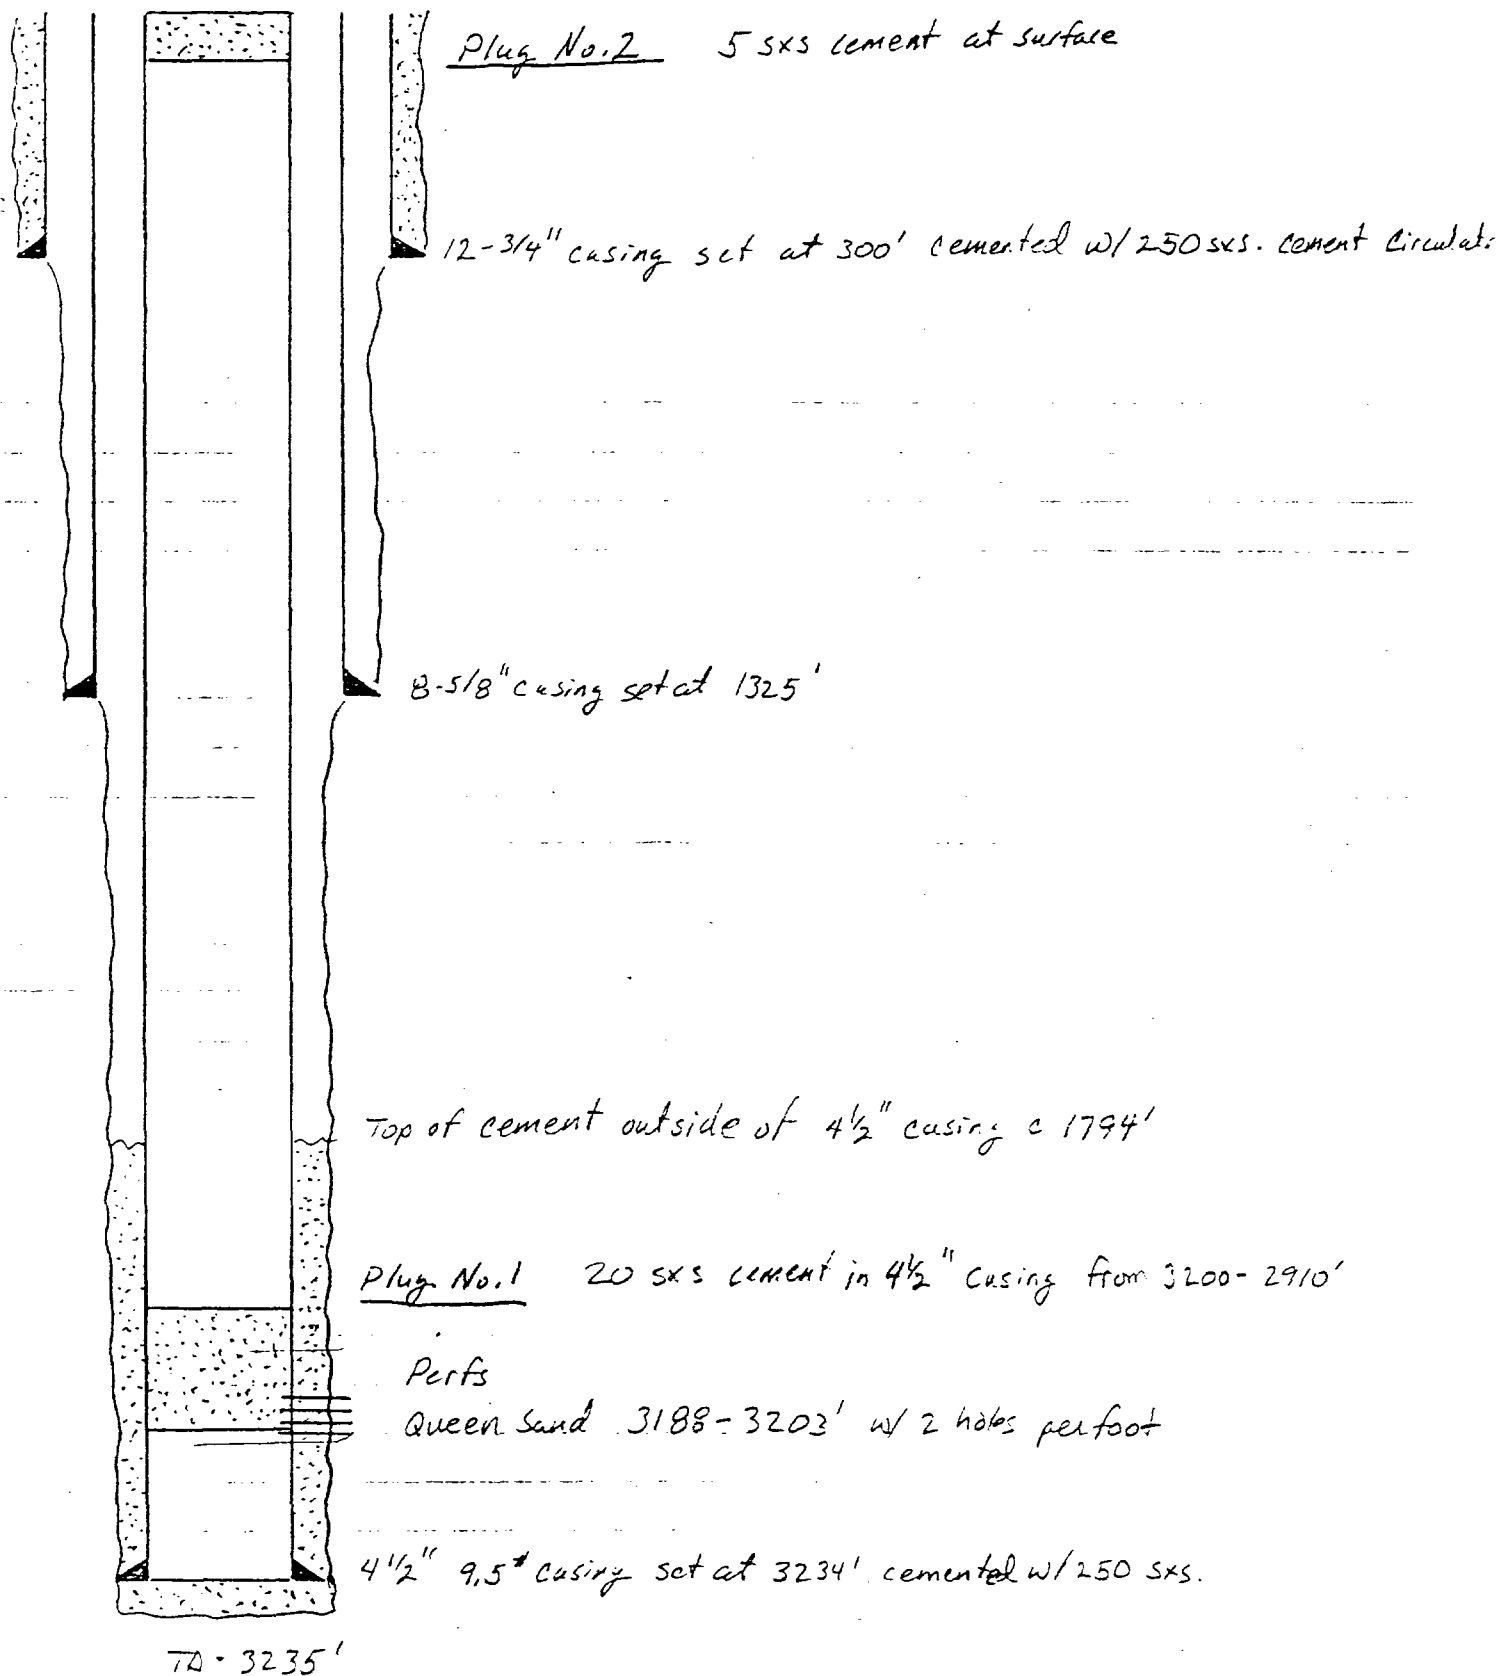 Plug No.2 5 sxs cement at surface
12-3/4" casing set at 300' cemented w/ 250 sxs. cement Circulat
8-5/8" casing set at 1325'
Top of cement outside of 4½" casing @ 1794'
Plug No.1 20 sxs cement in 4½" casing from 3200-2910'
Perfs
Queen Sand 3188-3203' w/ 2 holes per foot
4½" 9.5# casing set at 3234' cemented w/ 250 sxs.
TD - 3235'